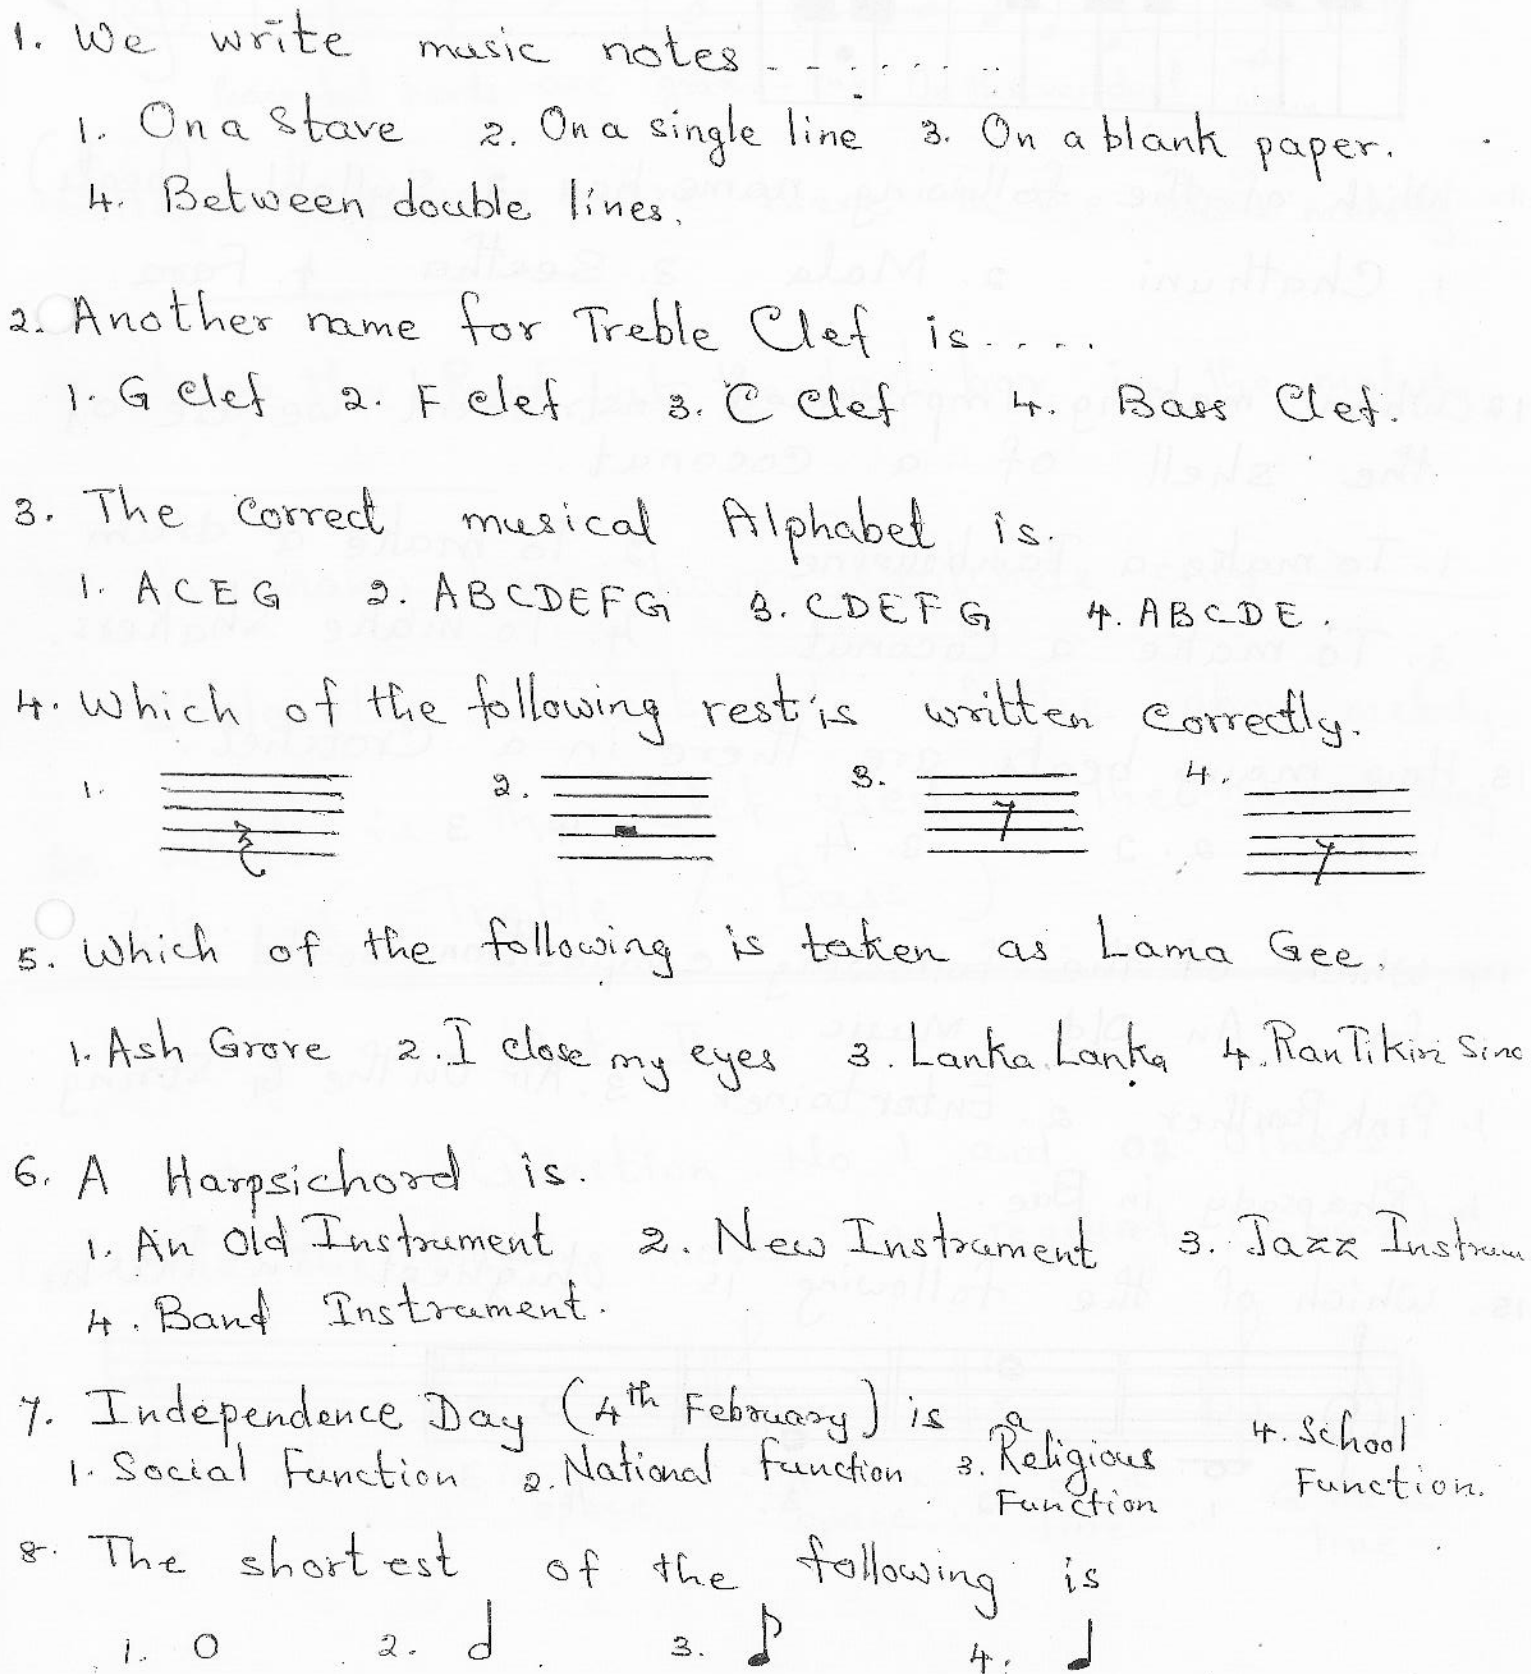 1. We write music notes ..........
1. On a Stave 2. On a single line 3. On a blank paper.
4. Between double lines.
2. Another name for Treble Clef is.....
1. G Clef 2. F clef 3. C Clef 4. Bass Clef.
3. The correct musical Alphabet is.
1. ACEG 2. ABCDEFG 3. CDEFG 4. ABCDE.
4. Which of the following rest is written correctly.
1. 2. 3. 4.
5. Which of the following is taken as Lama Gee.
1. Ash Grove 2. I close my eyes 3. Lanka Lanka 4. Ran Tikiri Sina
6. A Harpsichord is.
1. An Old Instrument 2. New Instrument 3. Jazz Instrum
4. Band Instrument.
7. Independence Day (4th February) is a
1. Social Function 2. National function 3. Religious Function 4. School Function.
8. The shortest of the following is
1. 2. 3. 4.